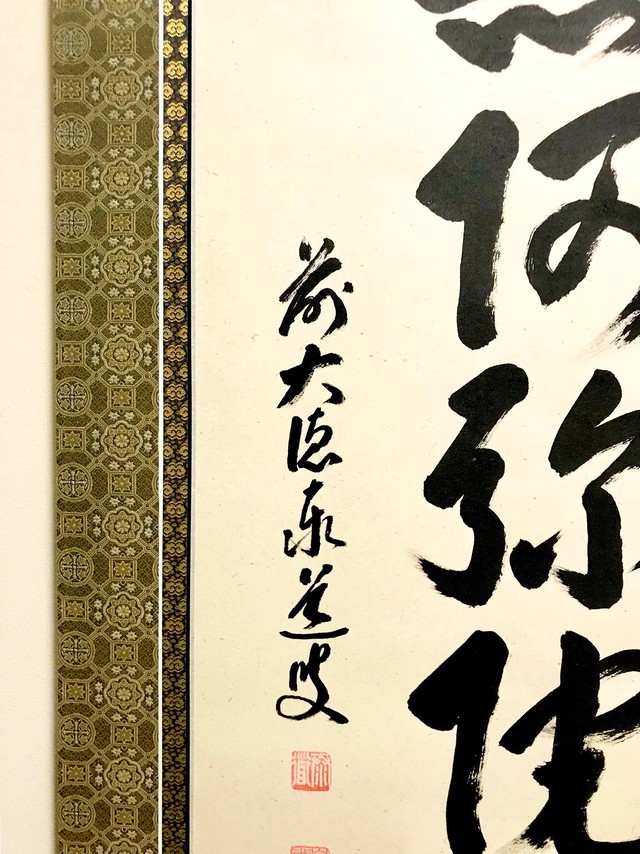 阿弥陀
前大徳泰道叟